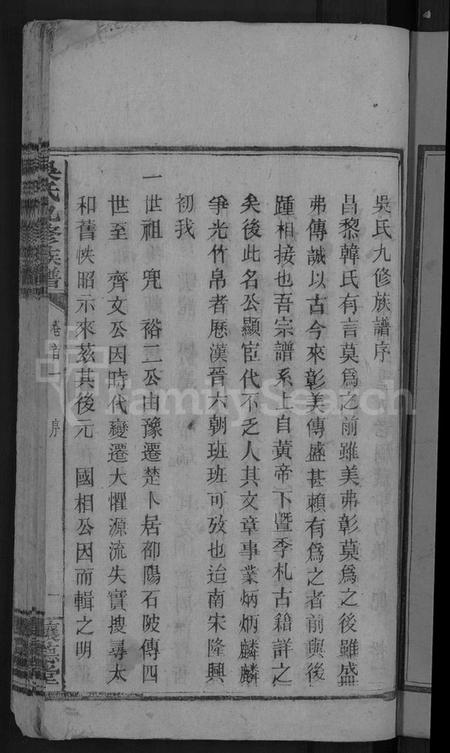 吳氏九修族譜序
昌黎韓氏有言莫爲之前雖美弗彰莫爲之後雖盛
弗傳誠以古今來彰美傳盛甚賴有爲之者前與後
踵相接也吾宗譜系上自黃帝下暨季札古籍詳之
矣後此名公顯宦代不乏人其文章事業炳炳麟麟
爭光竹帛者歷漢晉六朝班班可攷也迨南宋隆興
初我
一世祖 兕 裕二公由豫遷楚卜居邵陽石陂傳四
世至 齊文公因時代變遷大懼源流失實搜尋太
和舊帙昭示來茲其後元 國相公因而輯之明
吳氏九修族譜
卷首一
序
一
FamilySearch